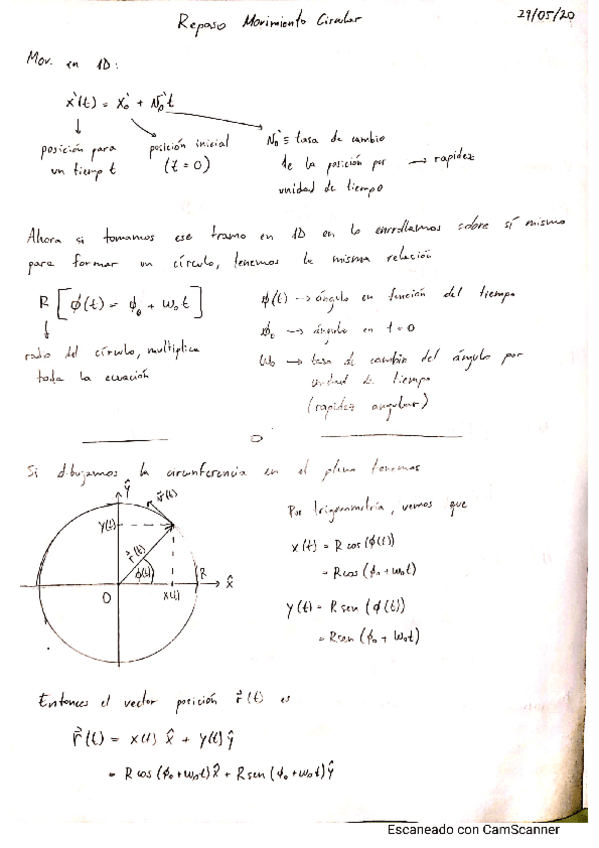 Repaso Movimiento Circular
29/05/20
Mov. en 1D:
x(t) = x₀ + v₀t
posición para
un tiempo t
posición inicial
(t = 0)
v₀ ≡ tasa de cambio
de la posición por → rapidez
unidad de tiempo
Ahora si tomamos ese tramo en 1D en lo enrollamos sobre sí mismo
para formar un círculo, tenemos la misma relación
R [ϕ(t) = ϕ₀ + ω₀t]
radio del círculo, multiplica
toda la ecuación
ϕ(t) → ángulo en función del tiempo
ϕ₀ → ángulo en t = 0
ω₀ → tasa de cambio del ángulo por
unidad de tiempo
(rapidez angular)
Si dibujamos la circunferencia en el plano tenemos
ŷ
v⃗(t)
y(t)
r⃗(t)
ϕ(t)
R
x̂
O
x(t)
Por trigonometría, vemos que
x(t) = R cos(ϕ(t))
= R cos (ϕ₀ + ω₀t)
y(t) = R sen (ϕ(t))
= R sen (ϕ₀ + ω₀t)
Entonces el vector posición r⃗(t) es
r⃗(t) = x(t) x̂ + y(t) ŷ
= R cos (ϕ₀ + ω₀t) x̂ + R sen (ϕ₀ + ω₀t) ŷ
Escaneado con CamScanner